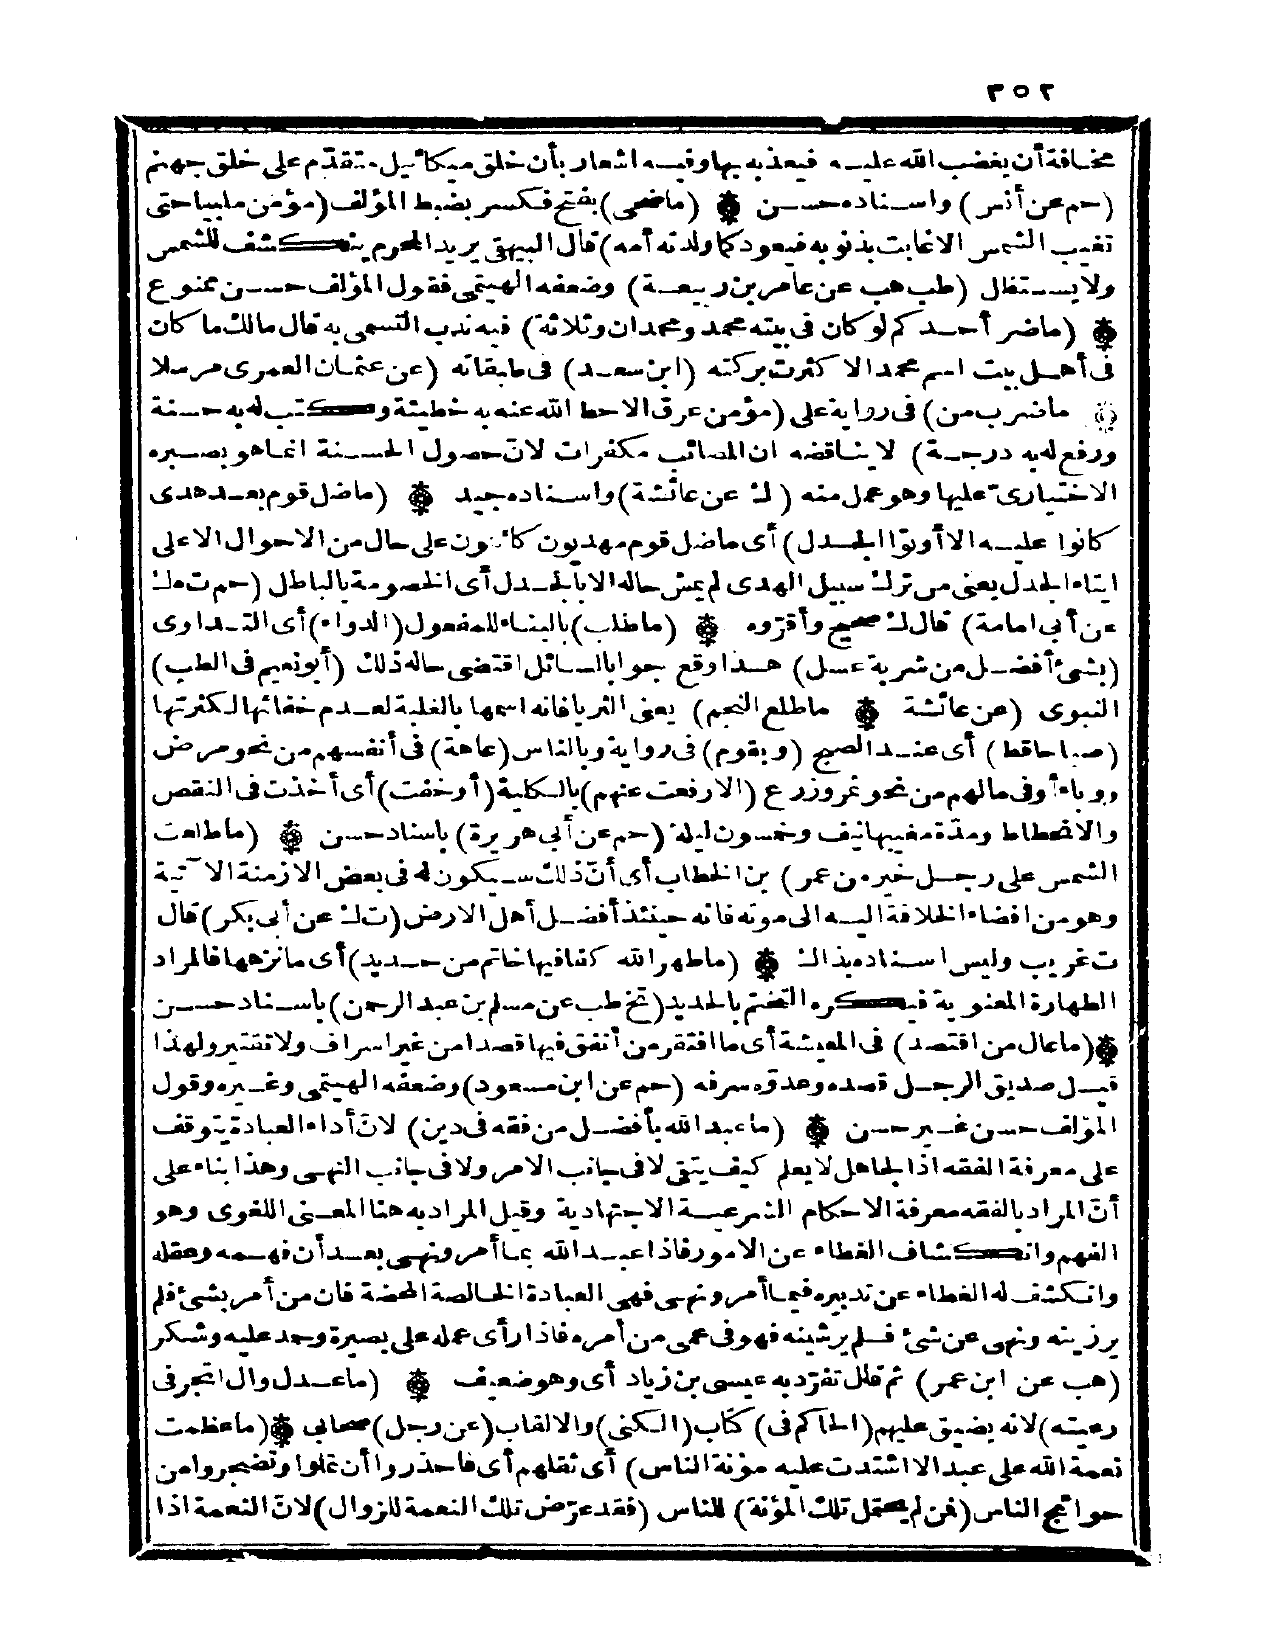 ٣٥٢
مخافة أن يغضب الله عليه فيعذبه بها وفيه اشعار بأن خلق ميكائيل متقدّم على خلق جهنم
(حم عن أنس) واسناده حسن ۞ (ماضحى) بفتح فكسر بضبط المؤلف (مؤمن ملبيا حتى
تغيب الشمس الاغابت بذنوبه فيعود كما ولدته أمه) قال البيهقى يريد المحرم ينكشف للشمس
ولا يستظل (طب هب عن عامر بن ربيعة) وضعفه الهيتمى فقول المؤلف حسن ممنوع
۞ (ماضر أحدكم لو كان فى بيته محمد ومحمدان وثلاثة) فيه ندب التسمى به قال مالك ما كان
فى أهل بيت اسم محمد الا كثرت بركته (ابن سعد) فى طبقاته (عن عثمان العمرى مرسلا
۞ ماضرب من) فى رواية على (مؤمن عرق الاحط الله عنه به خطيئة وكتب له به حسنة
ورفع له به درجة) لا يناقضه ان المصائب مكفرات لانّ حصول الحسنة انما هو بصبره
الاختيارىّ عليها وهو عمل منه (ك عن عائشة) واسناده جيد ۞ (ماضل قوم بعد هدى
كانوا عليه الا أوتوا الجدل) أى ماضل قوم مهديون كائنون على حال من الاحوال الاعلى
ايتاء الجدل يعنى من ترك سبيل الهدى لم يمش حاله الا بالجدل أى الخصومة بالباطل (حم ت ه ك
عن أبى امامة) قال ك صحيح وأقرّوه ۞ (ماطلب) بالبناء للمفعول (الدواء) أى التداوى
(بشئ أفضل من شربة عسل) هذا وقع جوابا لسائل اقتضى حاله ذلك (أبو نعيم فى الطب)
النبوى (عن عائشة ۞ ماطلع النجم) يعنى الثريا فانه اسمها بالغلبة لعدم خفائها لكثرتها
(صباحا قط) أى عند الصبح (وبقوم) فى رواية وبالناس (عاهة) فى أنفسهم من نحو مرض
ووباء أو فى مالهم من نحو ثمر وزرع (الارفعت عنهم) بالكلية (أو خفت) أى أخذت فى النقص
والانحطاط ومدّة مغيبها نيف وخمسون ليلة (حم عن أبى هريرة) باسناد حسن ۞ (ماطلعت
الشمس على رجل خير من عمر) بن الخطاب أى انّ ذلك سيكون له فى بعض الازمنة الآتية
وهو من افضاء الخلافة اليه الى موته فانه حينئذ أفضل أهل الارض (ت ك عن أبى بكر) قال
ت غريب وليس اسناده بذاك ۞ (ماطهر الله كفا فيها خاتم من حديد) أى ما نزهها فالمراد
الطهارة المعنوية فيكره التختم بالحديد (تخ طب عن مسلم بن عبد الرحمن) باسناد حسن
۞ (ماعال من اقتصد) فى المعيشة أى ما افتقر من أنفق فيها قصدا من غير اسراف ولا تقتير ولهذا
قيل صديق الرجل قصده وعدوّه سرفه (حم عن ابن مسعود) وضعفه الهيتمى وغيره وقول
المؤلف حسن غير حسن ۞ (ماعبد الله بأفضل من فقه فى دين) لانّ أداء العبادة يتوقف
على معرفة الفقه اذ الجاهل لا يعلم كيف يتقى لا فى جانب الامر ولا فى جانب النهى وهذا بناء على
أنّ المراد بالفقه معرفة الاحكام الشرعية الاجتهادية وقيل المراد به هنا المعنى اللغوى وهو
الفهم وانكشاف الغطاء عن الامور فاذا عبد الله بما أمر ونهى بعد أن فهمه وعقله
وانكشف له الغطاء عن تدبيره فيما أمر ونهى فهى العبادة الخالصة المحضة فان من أمر بشئ فلم
ير زينه ونهى عن شئ فلم ير شينه فهو فى عمى من أمره فاذا رأى عمله على بصيرة وحمد عليه وشكر
(هب عن ابن عمر) ثم قال تفرّد به عيسى بن زياد أى وهو ضعيف ۞ (ماعدل وال اتجر فى
رعيته) لانه يضيق عليهم (الحاكم فى) كتاب (الكنى) والالقاب (عن رجل) صحابى ۞ (ماعظمت
نعمة الله على عبد الا اشتدت عليه مؤنة الناس) أى ثقلهم أى فاحذروا أن تملوا وتضجروا من
حوائج الناس (فمن لم يحتمل تلك المؤنة) للناس (فقد عرّض تلك النعمة للزوال) لانّ النعمة اذا